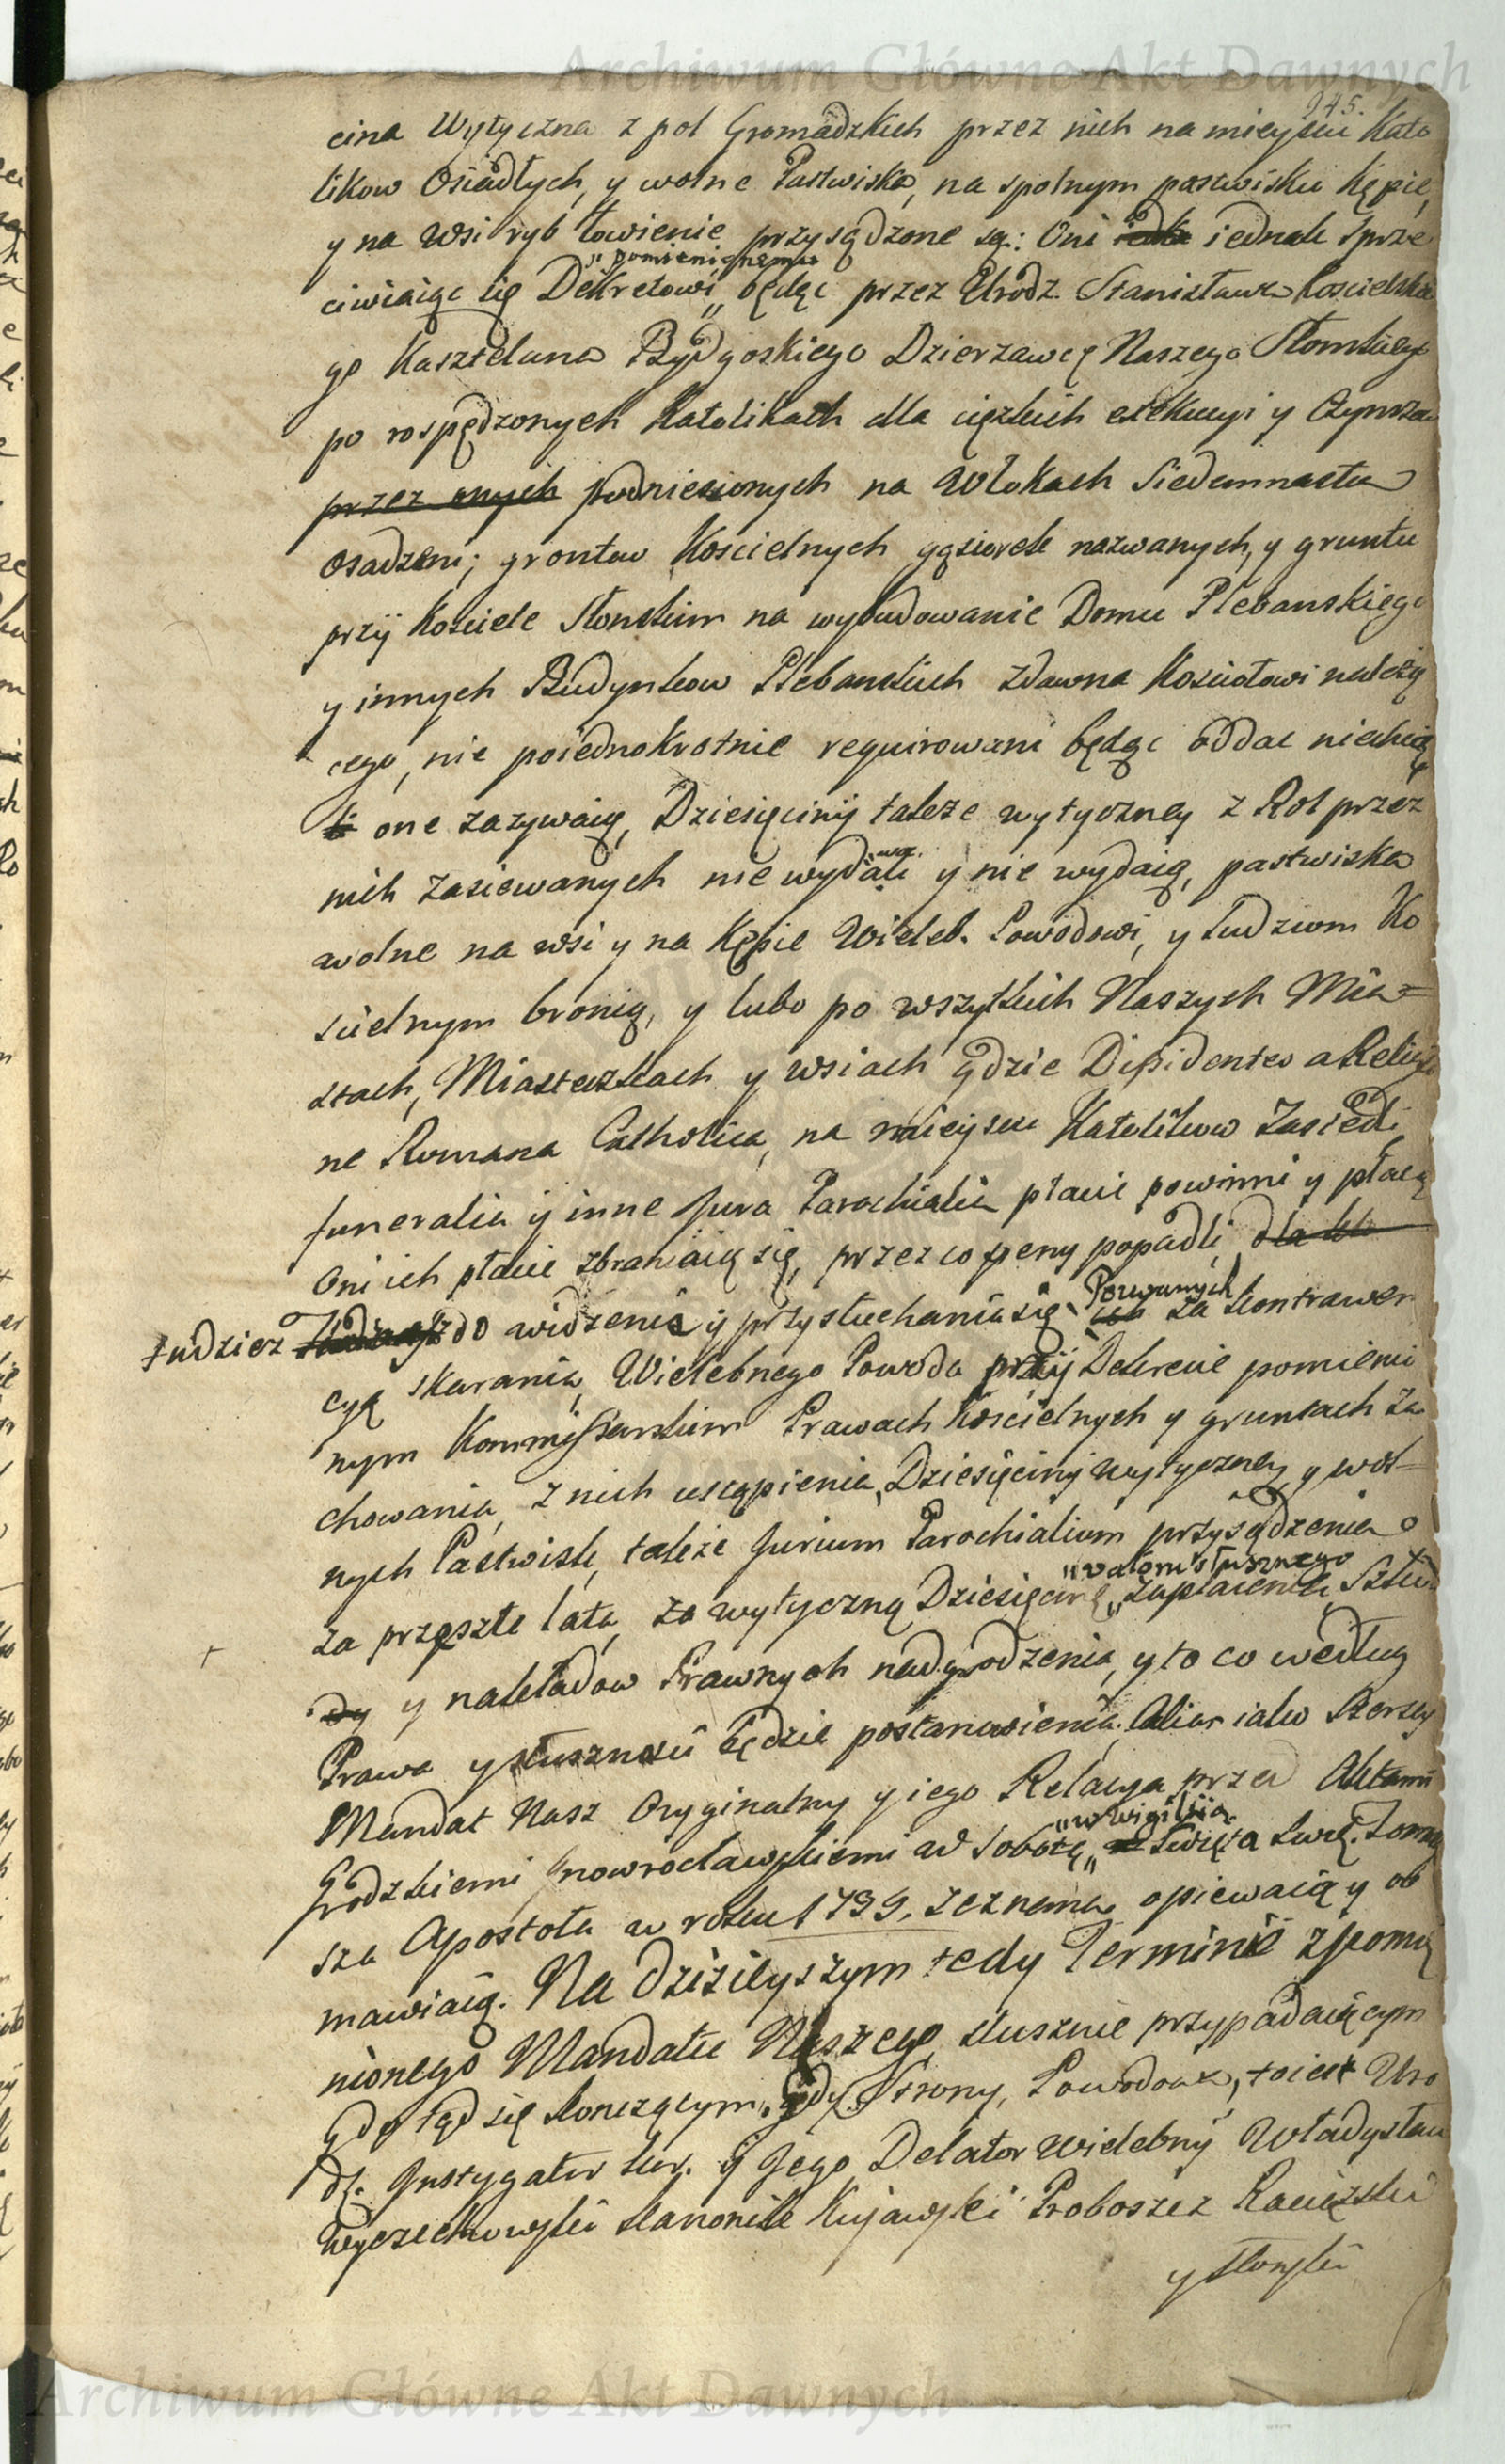 Archiwum Główne Akt Dawnych
945.
cina Wytyczna z pol Gromadzkich przez nich na mieyscu Kato
likow Osiadłych, y wolne Pastwiska, na spolnym pastwisku Kępie,
y na Wsi ryb łowienie przysądzone są: Oni iednak sprze
" pomienionemu
ciwiaiąc się Dekretowi " będąc przez Urodz. Stanisława Koscielskie
go Kasztelana Bydgoskiego Dzierzawcę Naszego Słonskiego
po rospędzonych Katolikach dla cięzkich exekucyi y Czynszow
przez onych podniesionych na Włokach Siedmnastu
osadzeni; grontow Koscielnych gąsiorek nazwanych, y gruntu
przÿ Kosciele Słonskim na wybudowanie Domu Plebanskiego
y innych Budynkow Plebanskich zdawna Kosciołowi należą
cego, nie poiednokrotnie requirowani będąc oddac niechcią
one zazywaią, Dziesięcinÿ takze wytyczney z Rol przez
nich zasiewanych nie wydali y nie wydaią, pastwiska
wolne na wsi y na Kępie Wieleb. Powodowi, y ludziom Ko
scielnym bronią, y lubo po wszytkich Naszych Mia=
stach, Miasteczkach y wsiach gdzie Dissidentes a Religio
ne Romana Catholica, na mieyscu Katolikow Zasiedli,
funeralia y inne Jura Parochialia płacic powinni y płacą
Oni ich płacic zbraniaią się, przez co peny popadli, dla
Porwanych
tudziez do widzenia y przysłuchania się za kontrawen
cyą skarania, Wielebnego Powoda przÿ Dekrecie pomienio
nym Kommissarskim Prawach Koscielnych y gruntach Za
chowania, z nich ustąpienia, Dziesięciny wytyczney y wol=
nych Pastwisk, takze Jurium Parochialium przysądzenia
"valoris słusznego
za przeszłe lata, za wytyczną Dziesięcinę " zapłacenia, Szko
dy y nakładow Prawnych nadgrodzenia, y to co według
Prawa y słusznosci będzie postanowienia. Alias iako szerzey
Mandat Nasz Oryginalny y iego Relacya przed Aktami
"w wigilią
Grodzkiemi Inowrocławskiemi w Sobotę " Swięta Swię. Toma
sza Apostoła w roku 1739. zeznema opiewaią y ob
mawiaią. Na dzisieyszym tedy Terminie z pomie
nionego Mandatu Naszego słusznie przypadaiącym
y do tąd się konczącym, gdy Strony, Powodowa, toiest Uro
dz. Instygator kor. y Jego Delator Wielebny Władysław
Woyczechowski kanonik Kujawski Proboszcz Raciązski
y Słonski
Archiwum Główne Akt Dawnych